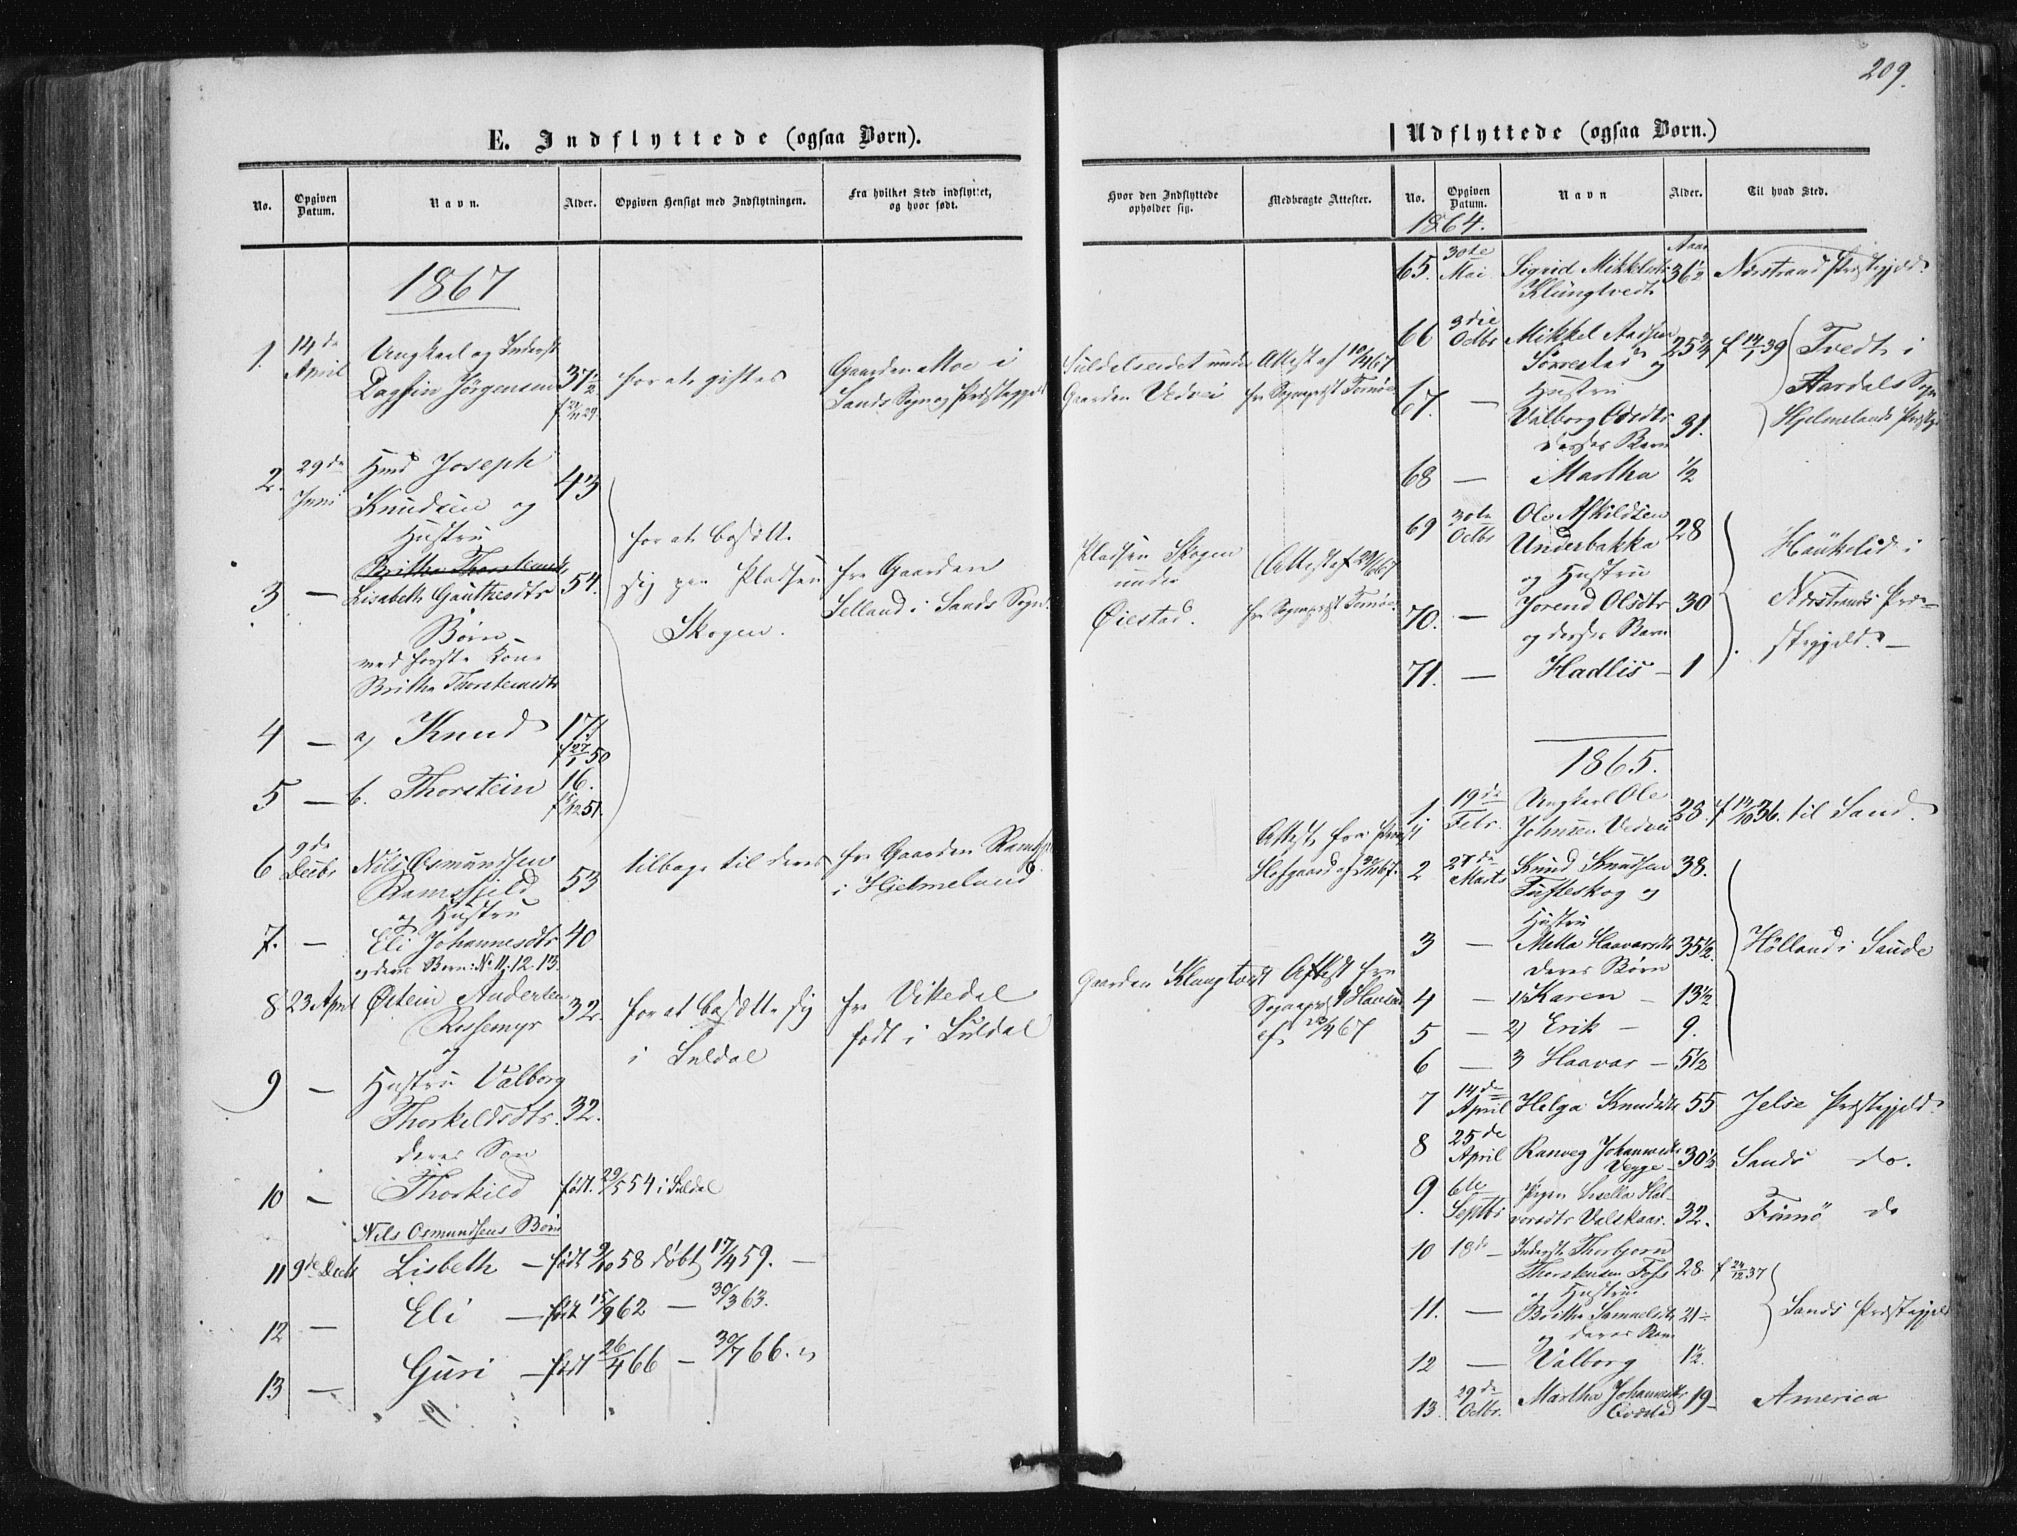 209.
E. Indflyttede (ogsaa Børn).
No.
Opgiven Datum.
Navn.
Alder.
Opgiven Hensigt med Indflytningen.
Fra hvilket Sted indflyttet, og hvor født.
1867
1. 14de April Ungkarl og Inderst
Dagfin Jörgensen 37½ f 21/11 29 for at giftes Gaarden Moe i
Sands Sogn og Præstegjeld
2. 29de Juni Hmd Joseph
Knudsen og 43
Hustru
Britha Thorsteinsdtr
3 — Lisabeth Gauthesdtr 54.
for at bosætte
sig paa Pladsen
Skogen.
fra Gaarden
Selland i Sands Sogn.
Børn
med første Kone
Britha Thorsteinsdtr
4 — a, Knud 17½ f 27/1 50
5 — b. Thorstein 16. 12 51.
6 9de Decbr Nils Osmundsen
Ramsfjeld 53 tilbage til deres fra Gaarden
i Hjelmeland
og Hustru
7. — Eli Johannesdtr 40
og deres Børn: No 11, 12. 13.
8 23 April Østein Andersen
Rossemyr 32. for at bosætte sig
i Suldal
fra Vikedal
født i Suldal
og
9 — Hustru Valborg
Thorkildsdtr. 32.
deres Søn
10 — Thorkild født. 29/5 54 i Suldal
Nils Osmundsens Børn
11 9de Decb Lisbeth — født 9/10 58 døbt 17/4 59. —
12 — Eli — født 15/9 62 — 30/3 63.
13 — Guri — født 26/4 66 — 30/7 66.
Udflyttede (ogsaa Børn.)
Hvor den Indflyttede opholder sig.
Medbragte Attester.
No.
Opgiven Datum.
Navn
Alder.
Til hvad Sted.
Suldelseidet under
Gaarden Vedvei
Attest af 10/4 67
fra Sogneprest
Pladsen Skogen
under
Øiestad.
Attest af 29/6 67
fra Sogneprest
Attest fra
Hofgaard af
Gaarden Klungtvedt Attest fra
Sogneprest Hansen
af 23/4 67
1864.
65. 30te Mai Sigrid Mikkelsdtr
Klungtvedt Aar 36½ Nærstrand Præstegjeld.
66 3die Octbr Mikkel Aadsen
Sørrestad og 25¾ f 14/1 39 Tvedt i
Aardals Sogn
Hjelmelands Præstegj
67. — Hustru
Valborg 31.
deres Barn
68 — Martha ½
69 30te Octbr Ole Askildsen
Underbakka 28 Haukelid i
Nærstrands Præ-
stegjeld. —
og Hustru
70. — Jorend Olsdtr 30
og deres Barn
71. — Hadlis — 1
1865.
1. 19de Febr. Ungkarl Ole
Johnsen Vedvei 28 f 36. til Sand.
2 27de Marts Knud Knudsen
Tufteskog og 38.
Hustru
3 — Metta Haavarsdtr 35½. Hølland i Saude
deres Børn
4 — 1, Karen — 13½
5 — 2, Erik — 9.
6 — 3 Haavar — 5½
7 14de April Helga Knudsdtr 55 Jelse Præstegjeld.
8 25de April Ranveg Johannesdtr
Vegge — 30½ Sands do.
9. 6te Septbr Pigen Sisella Hal-
vorsdtr Valskaar. 32. Finnø do
10 18de — Inderst Thorbjørn
Thorstensen Foss 28 f 24/12 37
og Hustru
11. — Britha Samuelsdtr 21 Sands Præstegjeld
og deres Barn
12 — Valborg 1½.
13. 29de Octbr. Martha Johannesdtr
19 America